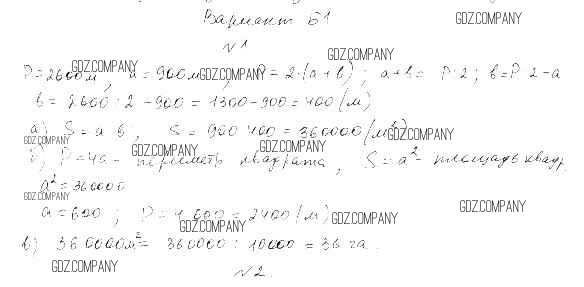 Вариант Б1 GDZ.COMPANY
№1
GDZ.COMPANY
P=2600м, a=900м, P=2·(a+b); a+b= P:2; b=P:2-a
GDZ.COMPANY GDZ.COMPANY
b= 2600 : 2 -900 = 1300-900=400 (м)
а) S=a·b; S= 900·400=360000 (м²)
GDZ.COMPANY GDZ.COMPANY
б) P=4a- периметр квадрата, S=a²- площадь квадр.
GDZ.COMPANY GDZ.COMPANY
a²=360000
GDZ.COMPANY
a=600; P=4·600=2400 (м)
GDZ.COMPANY GDZ.COMPANY GDZ.COMPANY
в) 360000м²= 360000 : 10000 = 36 га.
GDZ.COMPANY
№2.